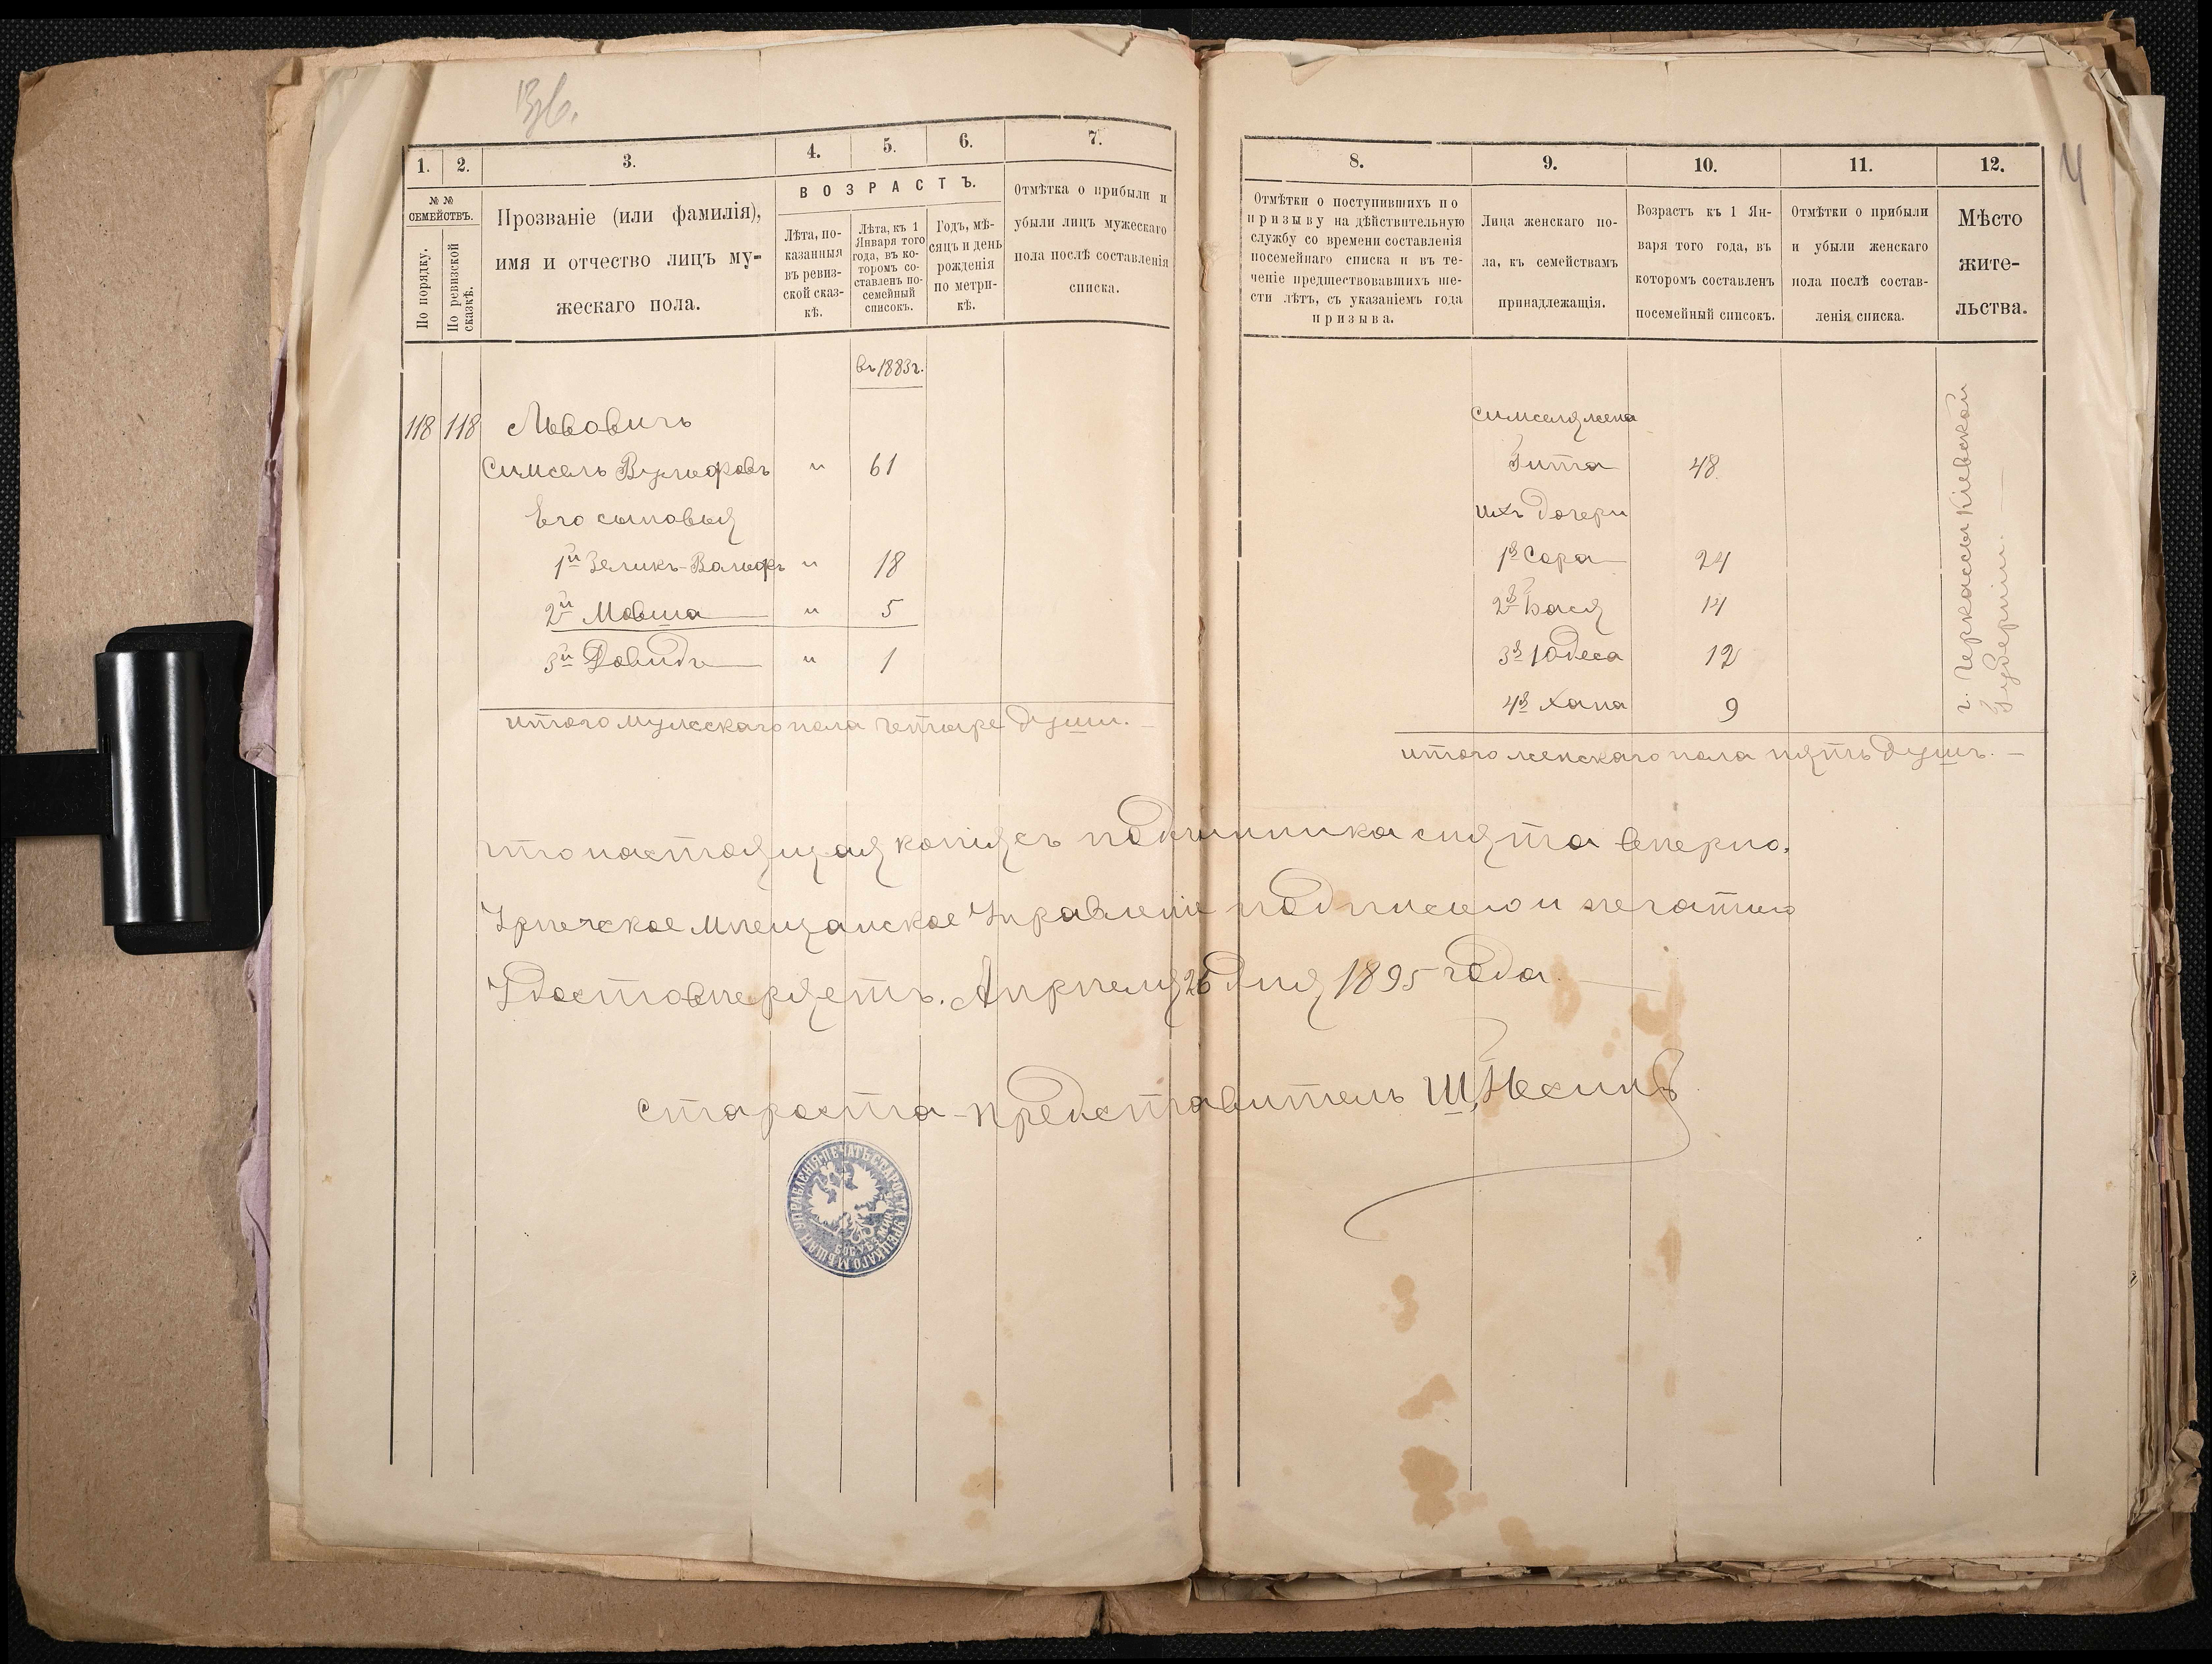 1.
2.
3.
4.
5.
6.
7.
№ №
СЕМЕЙСТВЪ.
По порядку.
По ревизской
сказкѣ.
Прозваніе (или фамилія),
имя и отчество лицъ му-
жескаго пола.
ВОЗРАСТЪ.
Лѣта, по-
казанныя
въ ревиз-
ской сказ-
кѣ.
Лѣта, къ 1
Января того
года, въ ко-
торомъ со-
ставленъ по-
семейный
списокъ.
Годъ, мѣ-
сяцъ и день
рожденія
по метри-
кѣ.
Отмѣтка о прибыли и
убыли лицъ мужескаго
пола послѣ составленія
списка.
въ 1883 г.
118 118 Львовичъ
Симсель Вульфовъ " 61
Его сыновья
1й Зеликъ-Вольфъ " 18
2й Мовша " 5
3й Довидъ " 1
итого мужескаго пола четыре души.
8.
9.
10.
11.
12.
Отмѣтки о поступившихъ по
призыву на дѣйствительную
службу со времени составленія
посемейнаго списка и въ те-
ченіе предшествовавшихъ ше-
сти лѣтъ, съ указаніемъ года
призыва.
Лица женскаго по-
ла, къ семействамъ
принадлежащія.
Возрастъ къ 1 Ян-
варя того года, въ
которомъ составленъ
посемейный списокъ.
Отмѣтки о прибыли
и убыли женскаго
пола послѣ состав-
ленія списка.
Мѣсто
жите-
льства.
4
Симселя жена
Гита 48
ихъ дочери
1я Сора 24
2я Бася 14
3я Юдеса 12
4я Хана 9
г. Черкасы Кіевской
Губерніи.
итого женскаго пола пять душъ.
что настоящая копія съ подлинника снята вѣрно,
Урѣчское Мѣщанское Управленіе подписью и печатью
Удостовѣряетъ. Апрѣля 26 дня 1895 года.
староста-представитель Ш. Нехинъ
ПЕЧАТЬ СТАРОСТЫ УРЕЦКАГО МѢЩАН. УПРАВЛЕНІЯ